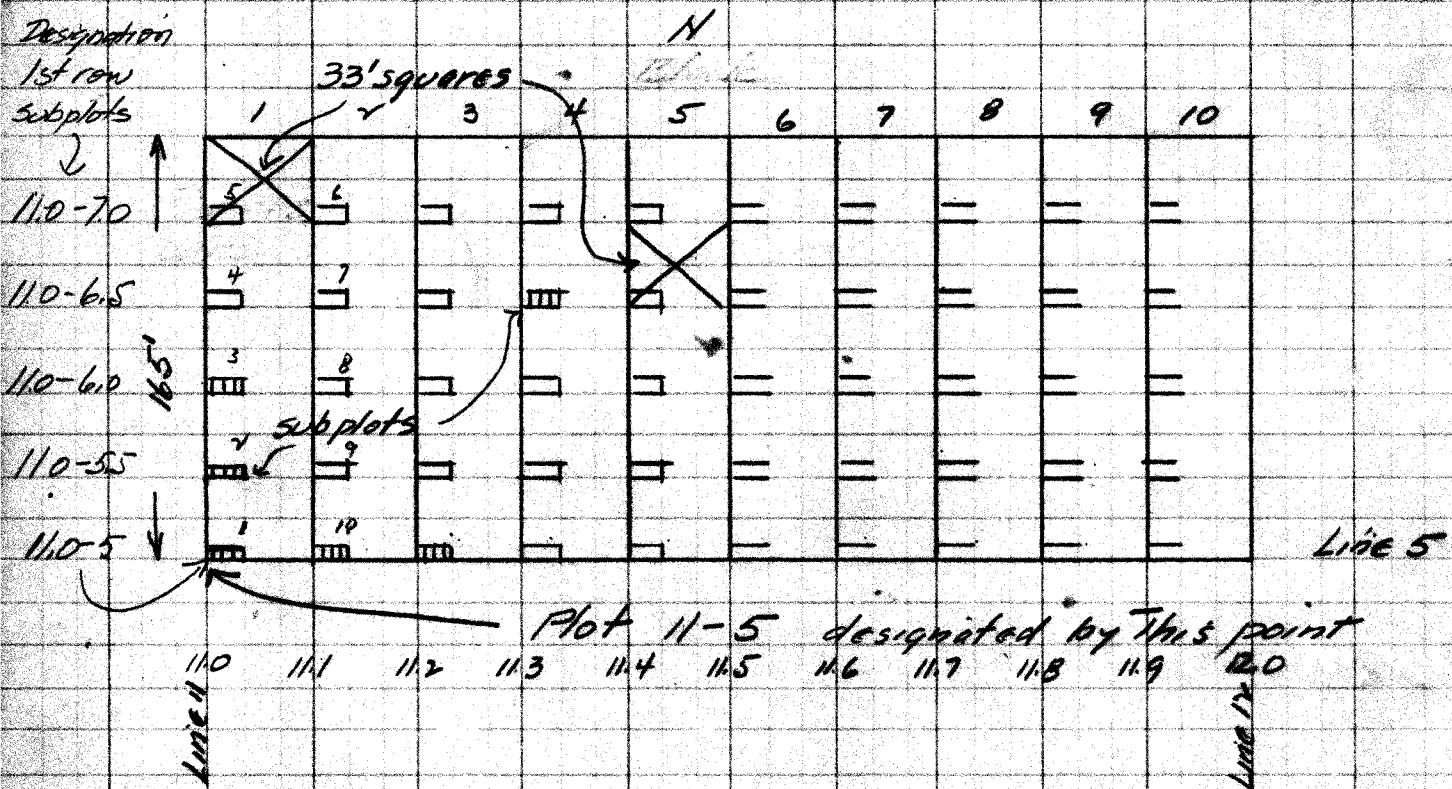 Designation
1st row
subplots
N
33' squares
1 2 3 4 5 6 7 8 9 10
11.0-7.0
5 6
11.0-6.5
4 7
11.0-6.0
3 8
165'
subplots
11.0-5.5
2 9
11.0-5
1 10
Line 5
Plot 11-5 designated by This point
11.0 11.1 11.2 11.3 11.4 11.5 11.6 11.7 11.8 11.9 12.0
Line 11
Line 12